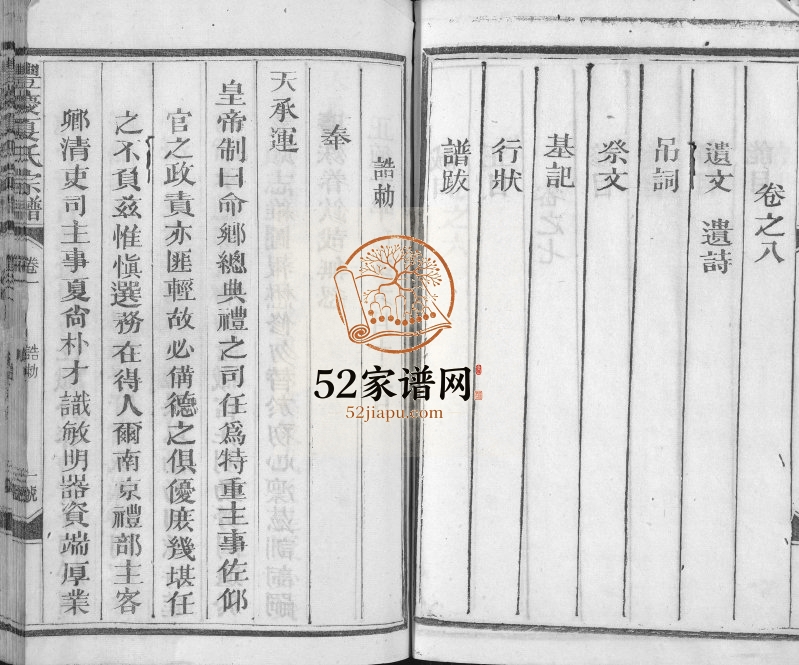 卷之八
遺文 遺詩
吊詞
祭文
基記
行狀
譜跋
誥勅
奉
天承運
皇帝制曰命鄉總典禮之司任爲特重主事佐仰
官之政責亦匪輕故必備德之俱優庻幾堪任
之不負兹惟愼選務在得人爾南京禮部主客
卿清吏司主事夏尙朴才識敏明器資端厚業
豐慶夏氏宗譜
卷一
誥勅
一號
52家谱网
52jiapu.com